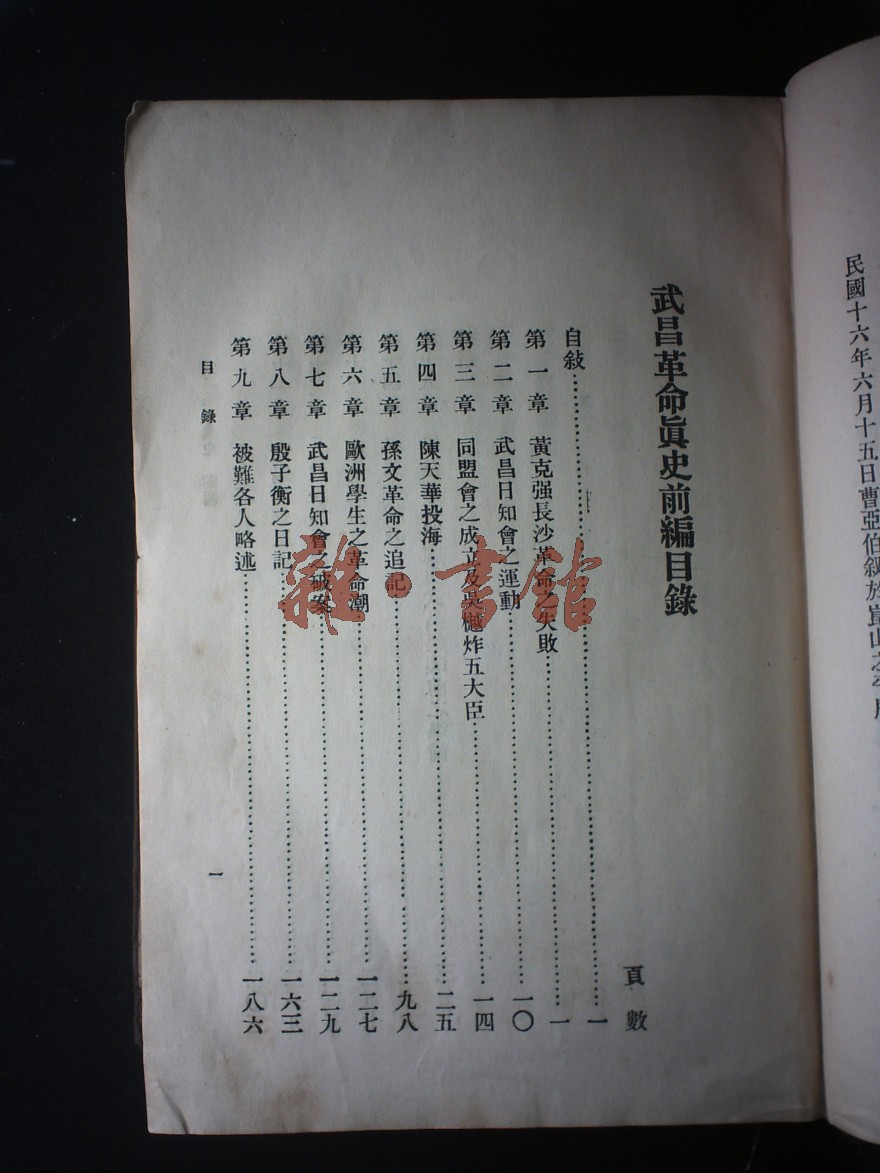 民國十六年六月十五日曹亞伯叙於崑山之
武昌革命眞史前編目錄
頁數
自敍……一
第一章 黃克强長沙革命之失敗……一
第二章 武昌日知會之運動……一〇
第三章 同盟會之成立及吳樾炸五大臣……一四
第四章 陳天華投海……二五
第五章 孫文革命之追記……九八
第六章 歐洲學生之革命潮……一二七
第七章 武昌日知會之破案……一二九
第八章 殷子衡之日記……一六三
第九章 被難各人略述……一八六
目錄 一
雜·書館